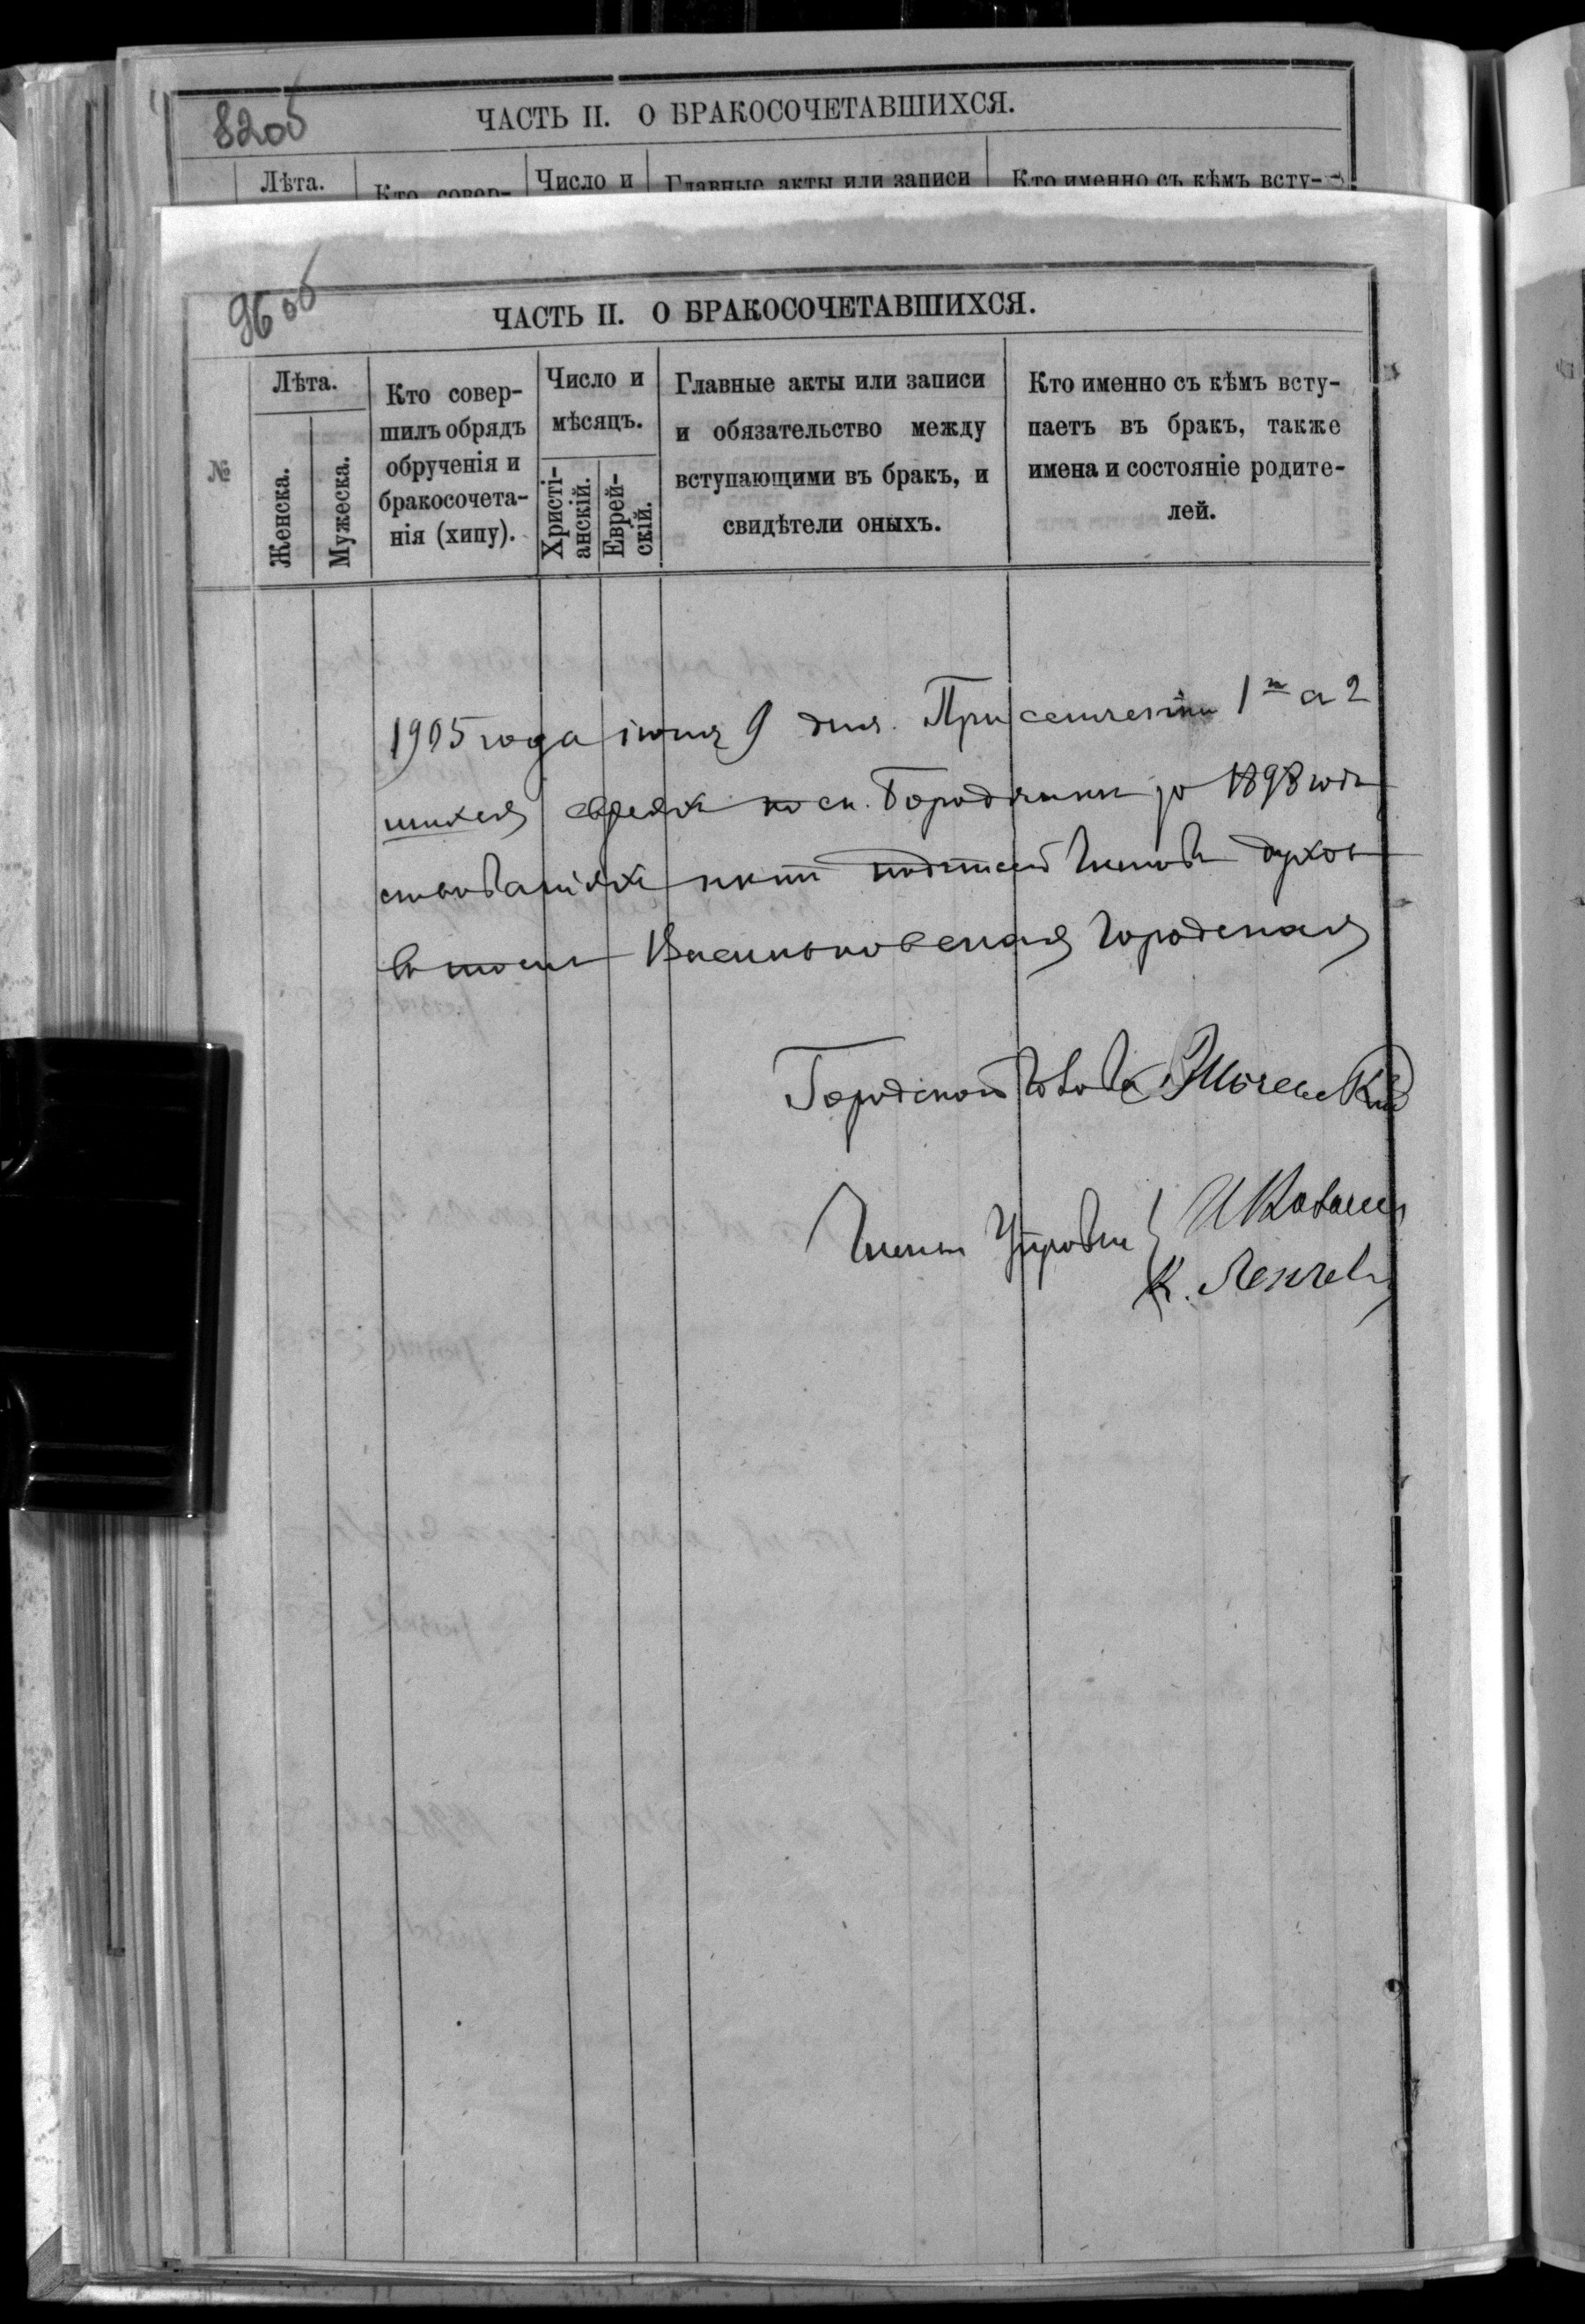 82об
ЧАСТЬ II. О БРАКОСОЧЕТАВШИХСЯ.
Лѣта.
Кто совер-
Число и
Главные акты или записи
Кто именно съ кѣмъ всту-
96об
ЧАСТЬ II. О БРАКОСОЧЕТАВШИХСЯ.
№
Лѣта.
Женска.
Мужеска.
Кто совер-
шилъ обрядъ
обрученія и
бракосочета-
нія (хипу).
Число и
мѣсяцъ.
Христі-
анскій.
Еврей-
скій.
Главные акты или записи
и обязательство между
вступающими въ бракъ, и
свидѣтели оныхъ.
Кто именно съ кѣмъ всту-
паетъ въ бракъ, также
имена и состояніе родите-
лей.
1905 года іюня 9 дня. При сличеніи 1й а 2
шихся евреях по м. Бородянки за 1898 годъ
подписей членовъ духов
Васильковская Городская
Городской Голова
Члены Управы
К.